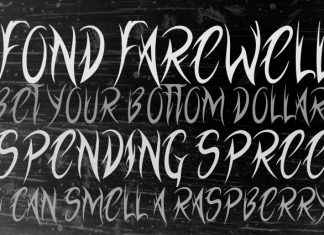 FOND FAREWELL
BET YOUR BOTTOM DOLLAR
SPENDING SPREE
I CAN SMELL A RASPBERRY